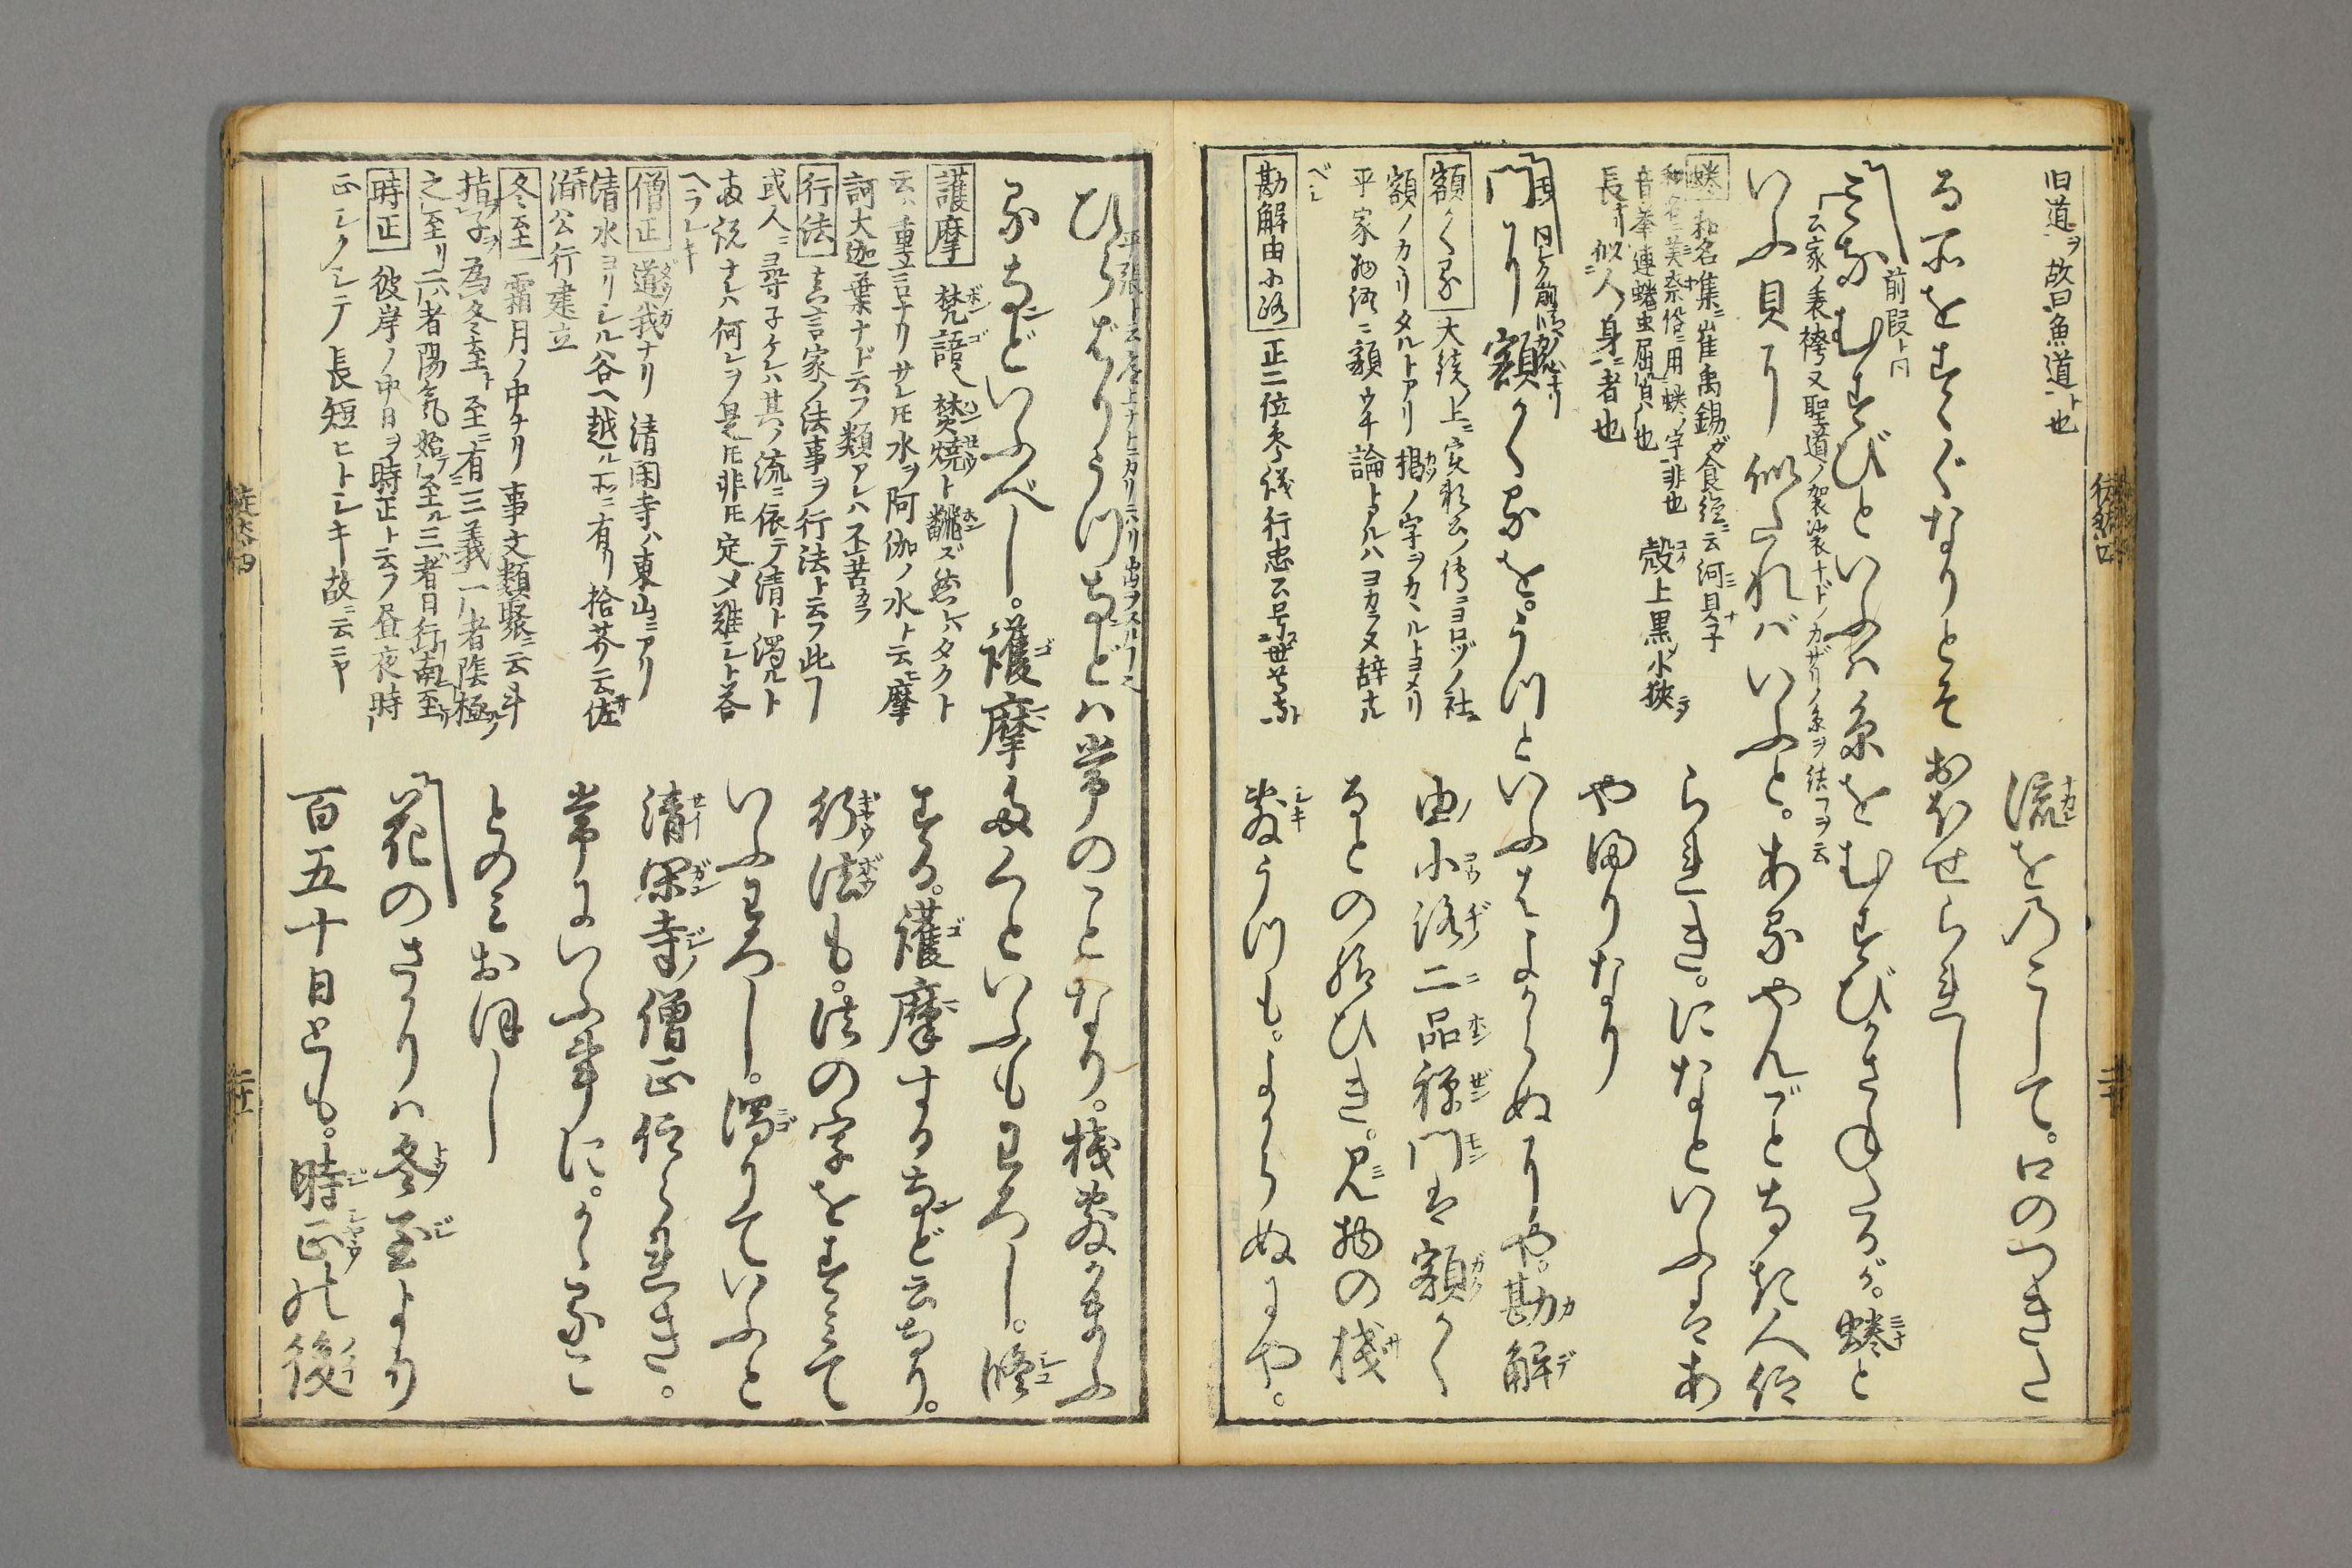 旧道ヲ故曰魚道ト也
流を乃こして。口のつきた
る所をすゝぐなりとぞおほせられし
前段ト同
みなむすびといふハ糸をむすびかさねたるが。蜷と
云家ノ表袴又聖道ノ袈裟ナドノカザリノ糸ヲ結フヲ云
いふ貝に似たれバいふと。あるやんごとなき人仰
蜷 和名集ニ崔禹錫ガ食経ニ云河貝子
和名美奈俗ニ用蜷ノ字非也 殻上黒小狭
音拳連蜷虫屈貌也
長メ似人身ニ者也
られき。になといふはあ
やまりなり
門に額かくるを。うつといふはよからぬにや。勘解
額かくる
額ノカヽリタルトアリ 掲ノ字ヲカヽルトヨメリ
平家物語ニ額ウチ論トアルハヨカラヌ辞ナル
べシ
勘解由小路 正二位参議行忠公号世尊寺ト
由小路二品禅門は額かく
るとの給ひき。見物の桟
敷うつも。よからぬにや。
ひらばりうつなどハ常のことなり。桟敷かまふ
るなどいふべし。護摩たくといふもわろし。修
護摩 梵語 焚焼ト翻ズ然レバタクト
云ハ重言ナリサレ𪜈水ヲ阿伽ノ水ト云ヒ摩
訶大迦葉ナド云フ類アレハ不苦カラ
行法 真言家ノ法事ヲ行法ト云フ此フ
或人ニ尋子ケレハ其ノ流ニ依テ清ト濁ルト
両説ナレハ何レヲ是𪜈非𪜈定メ難シト答
ヘラレキ
僧正 道我ナリ 清閑寺ハ東山ニアリ
清水ヨリシル谷ヘ越ル所ニ有リ拾芥云佐
伯公行建立
冬至 霜月ノ中ナリ事文類聚ニ云斗
指子ヲ為冬至ト至ニ有三義一ハ者陰極
之至リ二ハ者陽気始テ至ル三ハ者日行南至
時正 彼岸ノ中日ヲ時正ト云フ昼夜時
正シクシテ長短ヒトシキ故ニ云ニヤ
する。護摩するなど云なり。
行法も。法の字をすみて
いふわろし。濁りていふと
清閑寺僧正仰られき。
常にいふ事に。かゝるこ
とのみおほし
花のさかりハ冬至より
百五十日とも。時正の後